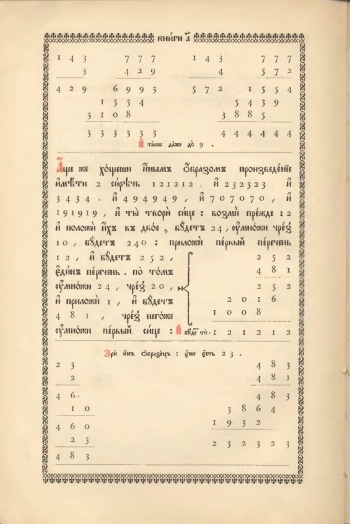 КНИГИ А҃
1 4 3 7 7 7 1 4 3 7 7 7
3 4 2 9 4 5 7 2
4 2 9 6 9 9 3 5 7 2 1 5 5 4
1 5 5 4 5 4 3 9
3 1 0 8 3 8 8 5
3 3 3 3 3 3 4 4 4 4 4 4
И҆ та́кѡ да́же до̀ 9 .
А҆́ще же хо́щеши и҆ны́мъ ѻ҆́бразомъ произведе́нїе
и҆мѣ́ти 2 си́рѣчь 121212 . и҆ 232323 и҆
3434 . и҆ 494949 , и҆ 707070 , и҆
191919 , и҆ ты̀ творѝ си́це : возмѝ пре́жде 12
и҆ положѝ и҆̀хъ въ дво́е , бꙋ́детъ 24 , ᲂу҆мно́жи чре́з̾
10 , бꙋ́детъ 240 : приложѝ пе́рвый пе́речень
12 , и҆ бꙋ́детъ 252 , 2 5 2
є҆ди́нъ пе́речень . по то́мъ 4 8 1
ᲂу҆мно́жи 24 , чре́з̾ 20 , 2 5 2
и҆ приложѝ 1 , и҆ бꙋ́детъ 2 0 1 6
4 8 1 , чре́з̾ него́же 1 0 0 8
ᲂу҆мно́жи пе́рвый си́це : И҆ бꙋ́детъ : 1 2 1 2 1 2
Зрѝ и҆́нъ ѻ҆бразе́цъ : є҆́же є҆́сть 2 3 .
2 3 4 8 3
2 4 8 1
4 6 . 4 8 3
1 0 3 8 6 4
4 6 0 1 9 3 2
2 3 2 3 2 3 2 3
4 8 3